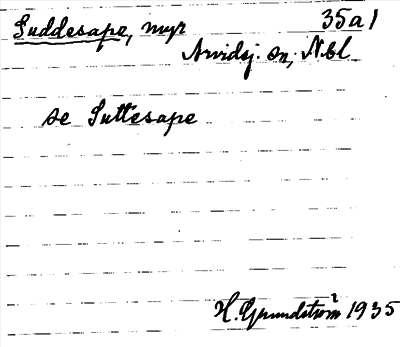 Suddesape, myr 35a1
Arvidsj. sn, Nbl
se Suttesape
H. Grundström 1935